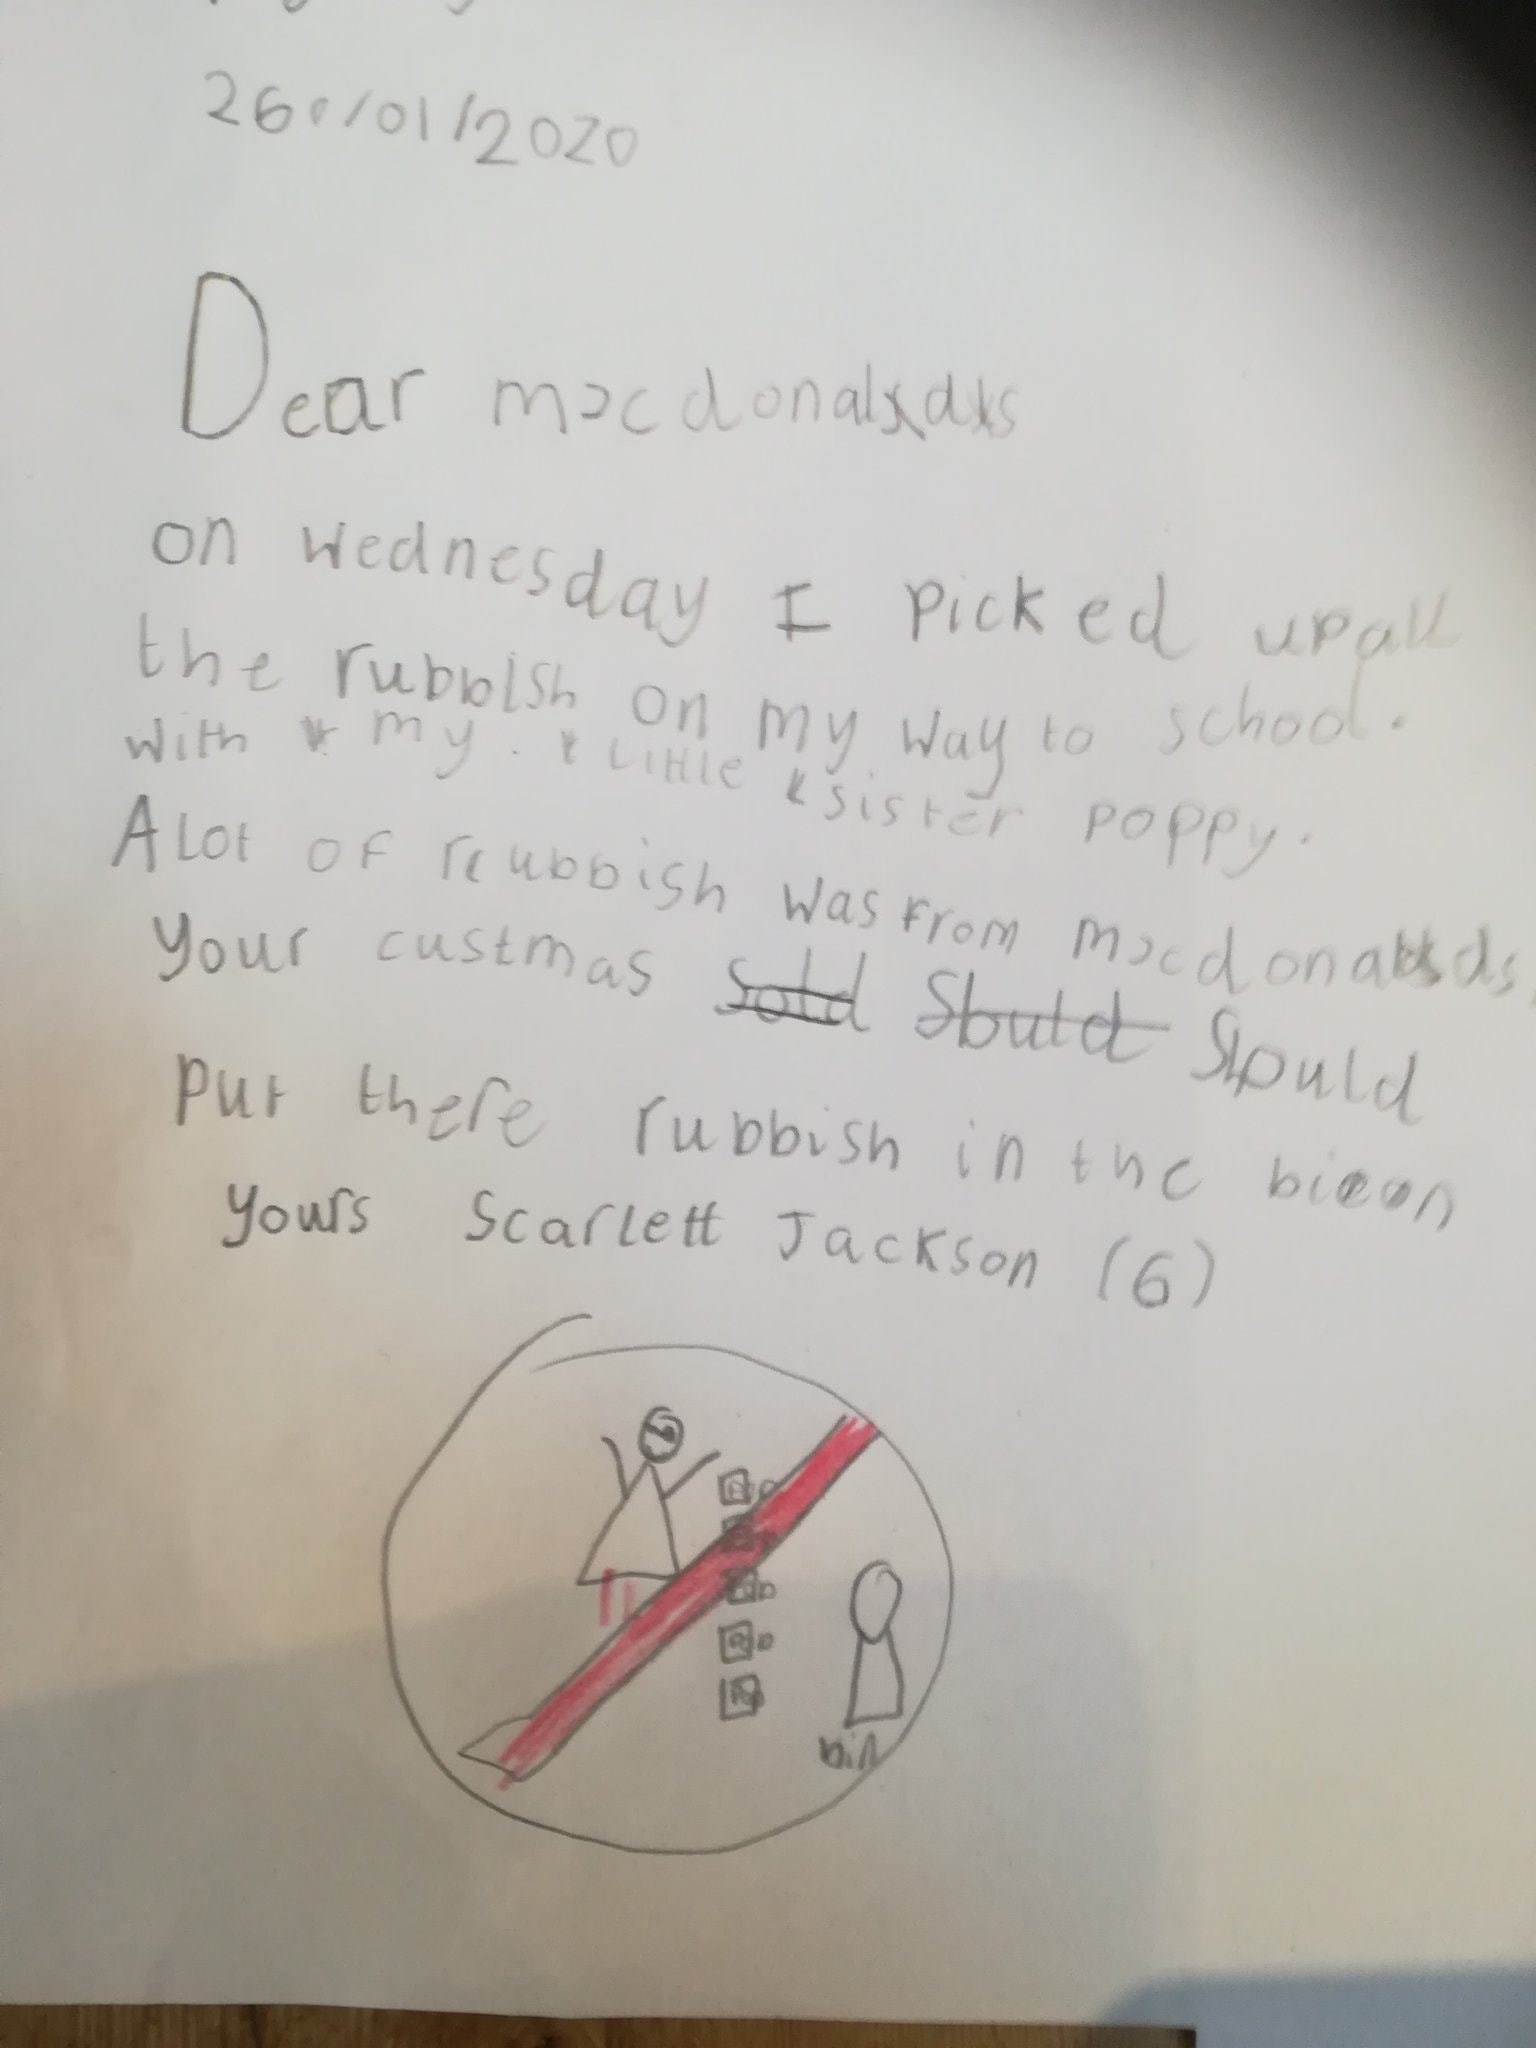 260/01/2020
Dear macdonalds
on wednesday I picked up all
the rubbish on my way to school.
with my little sister poppy.
A lot of ruubbish was from macdonalds,
your custmas sold Sbuld Should
put there rubbish in the bieon
yours Scarlett Jackson (6)
bin